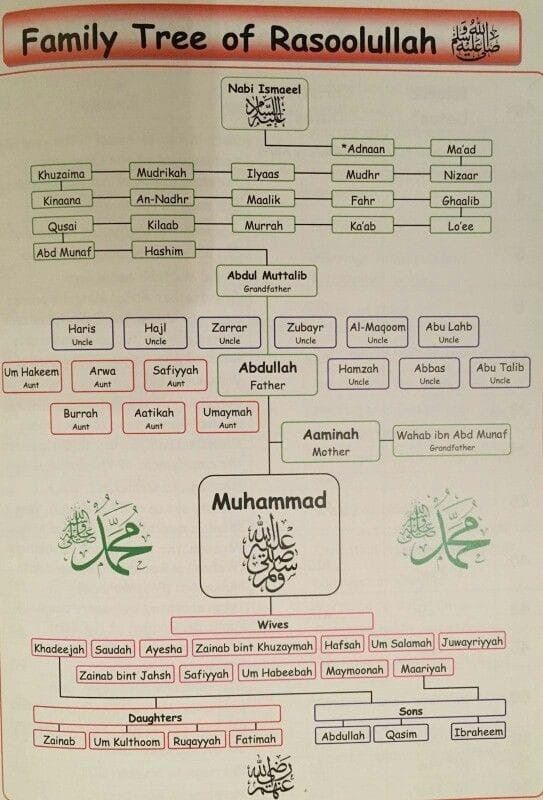 Family Tree of Rasoolullah ﷺ
Nabi Ismaeel
عليه السلام
*Adnaan Ma'ad
Khuzaima Mudrikah Ilyaas Mudhr Nizaar
Kinaana An-Nadhr Maalik Fahr Ghaalib
Qusai Kilaab Murrah Ka'ab Lo'ee
Abd Munaf Hashim
Abdul Muttalib
Grandfather
Haris Hajl Zarrar Zubayr Al-Maqoom Abu Lahb
Uncle Uncle Uncle Uncle Uncle Uncle
Um Hakeem Arwa Safiyyah Abdullah Hamzah Abbas Abu Talib
Aunt Aunt Aunt Father Uncle Uncle Uncle
Burrah Aatikah Umaymah
Aunt Aunt Aunt
Aaminah Wahab ibn Abd Munaf
Mother Grandfather
Muhammad
صلى الله عليه وسلم
محمد صلى الله عليه وسلم
محمد صلى الله عليه وسلم
Wives
Khadeejah Saudah Ayesha Zainab bint Khuzaymah Hafsah Um Salamah Juwayriyyah
Zainab bint Jahsh Safiyyah Um Habeebah Maymoonah Maariyah
Daughters Sons
Zainab Um Kulthoom Ruqayyah Fatimah Abdullah Qasim Ibraheem
رضي الله عنهم